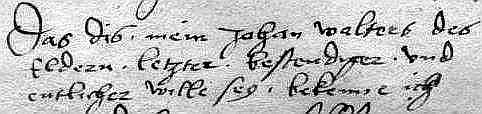 Das dis · mein Johan walters des
Eldern · letzter · bestendiger · vnd
entlicher wille sey · bekenne ich